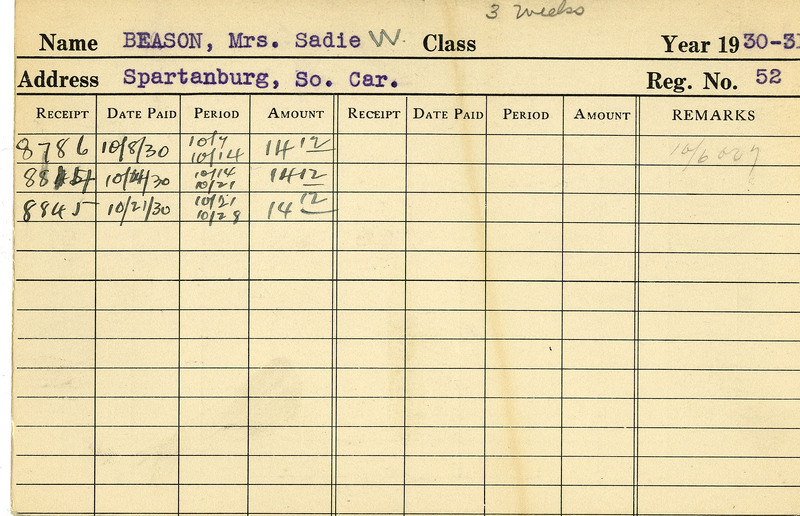 3 weeks
Name BEASON, Mrs. Sadie W. Class Year 1930-31
Address Spartanburg, So. Car. Reg. No. 52
RECEIPT DATE PAID PERIOD AMOUNT RECEIPT DATE PAID PERIOD AMOUNT REMARKS
8786 10/8/30 10/7 10/14 14 12
10/14/30 10/14 10/21 14 12
8845 10/21/30 10/21 10/28 14 12